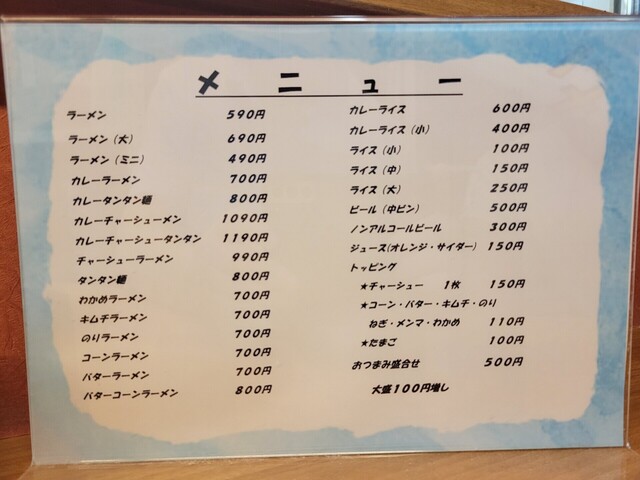 メニュー
ラーメン 590円
ラーメン（大） 690円
ラーメン（ミニ） 490円
カレーラーメン 700円
カレータンタン麺 800円
カレーチャーシューメン 1090円
カレーチャーシュータンタン 1190円
チャーシューラーメン 990円
タンタン麺 800円
わかめラーメン 700円
キムチラーメン 700円
のりラーメン 700円
コーンラーメン 700円
バターラーメン 700円
バターコーンラーメン 800円
カレーライス 600円
カレーライス（小） 400円
ライス（小） 100円
ライス（中） 150円
ライス（大） 250円
ビール（中ビン） 500円
ノンアルコールビール 300円
ジュース(オレンジ・サイダー) 150円
トッピング
★チャーシュー 1枚 150円
★コーン・バター・キムチ・のり
ねぎ・メンマ・わかめ 110円
★たまご 100円
おつまみ盛合せ 500円
大盛100円増し